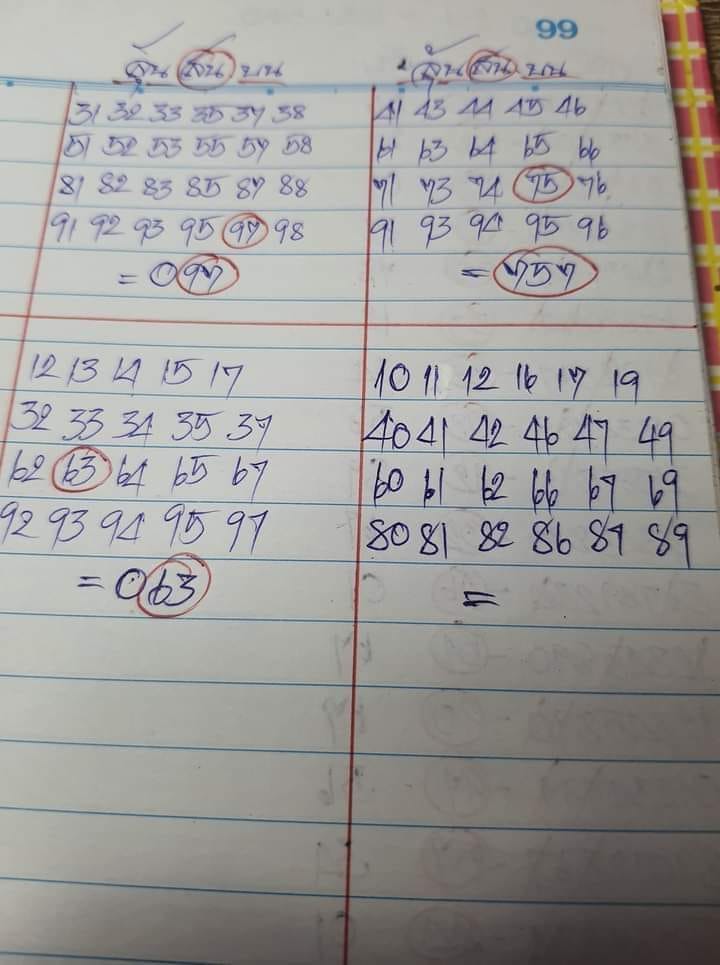 99
บน
31 32 33 35 37 38
51 52 53 55 57 58
81 82 83 85 87 88
91 92 93 95 97 98
= 097
บน
41 43 44 45 46
61 63 64 65 66
71 73 74 75 76
91 93 94 95 96
= 757
12 13 14 15 17
32 33 34 35 37
62 63 64 65 67
92 93 94 95 97
= 063
10 11 12 16 17 19
40 41 42 46 47 49
60 61 62 66 67 69
80 81 82 86 87 89
=